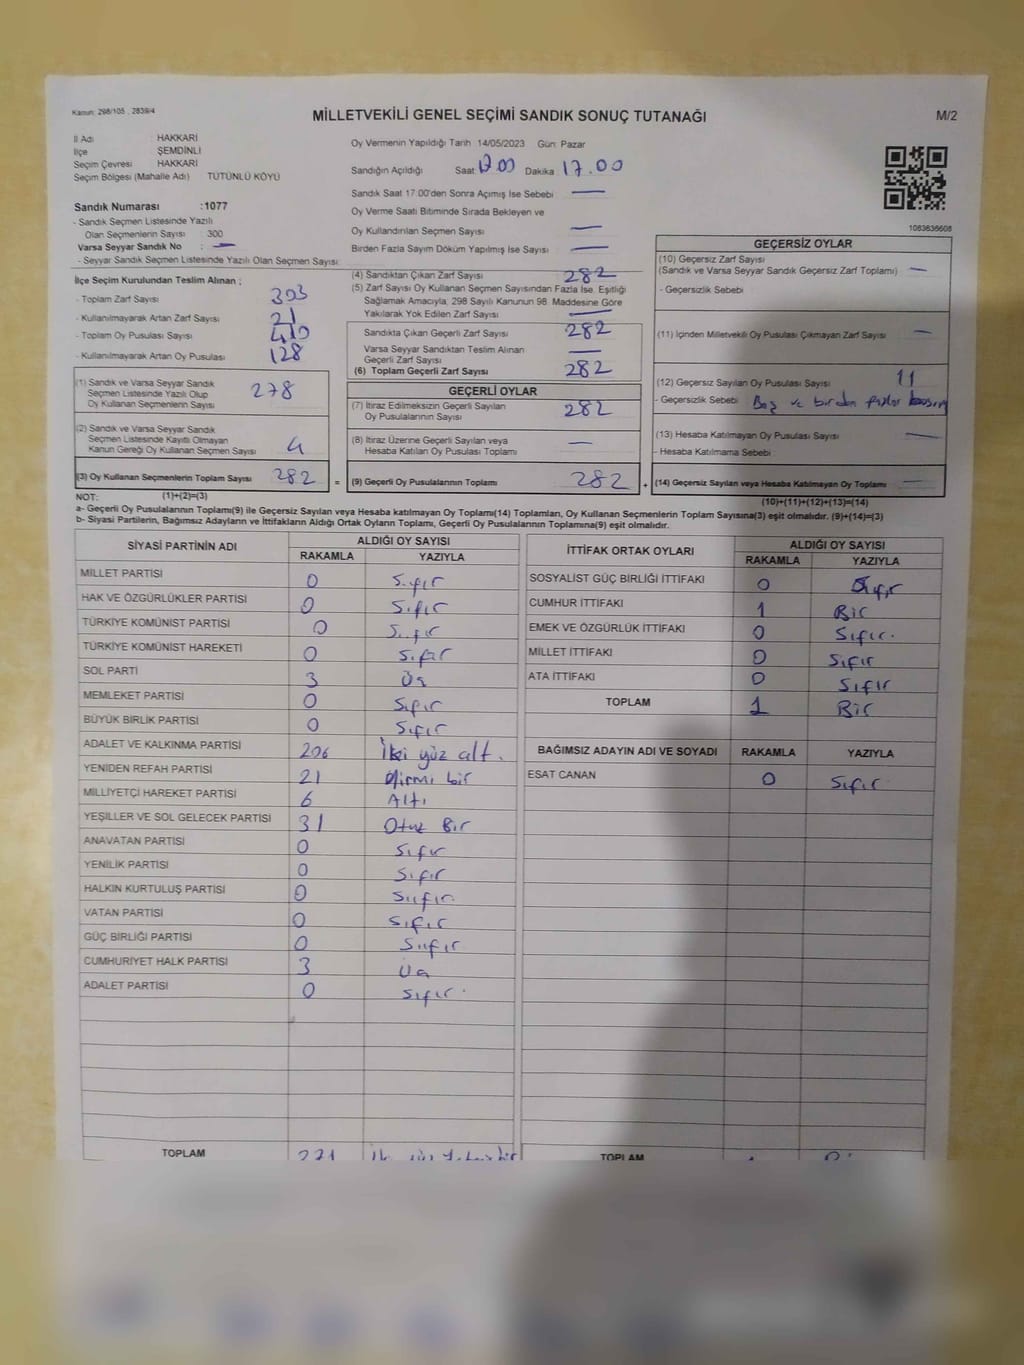 Kanun: 298/105 , 2839/4
MİLLETVEKİLİ GENEL SEÇİMİ SANDIK SONUÇ TUTANAĞI
M/2
İl Adı : HAKKARİ
İlçe : ŞEMDİNLİ
Seçim Çevresi : HAKKARİ
Seçim Bölgesi (Mahalle Adı) : TÜTÜNLÜ KÖYÜ
Sandık Numarası :1077
- Sandık Seçmen Listesinde Yazılı
Olan Seçmenlerin Sayısı : 300
Varsa Seyyar Sandık No : —
- Seyyar Sandık Seçmen Listesinde Yazılı Olan Seçmen Sayısı:
Oy Vermenin Yapıldığı Tarih 14/05/2023 Gün: Pazar
Sandığın Açıldığı Saat 17.00 Dakika 17.00
Sandık Saat 17:00'den Sonra Açımış İse Sebebi —
Oy Verme Saati Bitiminde Sırada Bekleyen ve
Oy Kullandırılan Seçmen Sayısı —
Birden Fazla Sayım Döküm Yapılmış İse Sayısı —
1083636608
İlçe Seçim Kurulundan Teslim Alınan ;
- Toplam Zarf Sayısı 303
- Kullanılmayarak Artan Zarf Sayısı 21
- Toplam Oy Pusulası Sayısı 410
- Kullanılmayarak Artan Oy Pusulası 128
(1) Sandık ve Varsa Seyyar Sandık
Seçmen Listesinde Yazılı Olup
Oy Kullanan Seçmenlerin Sayısı 278
(2) Sandık ve Varsa Seyyar Sandık
Seçmen Listesinde Kayıtlı Olmayan
Kanun Gereği Oy Kullanan Seçmen Sayısı 4
(3) Oy Kullanan Seçmenlerin Toplam Sayısı 282 =
(1)+(2)=(3)
(4) Sandıktan Çıkan Zarf Sayısı 282
(5) Zarf Sayısı Oy Kullanan Seçmen Sayısından Fazla İse, Eşitliği
Sağlamak Amacıyla, 298 Sayılı Kanunun 98. Maddesine Göre
Yakılarak Yok Edilen Zarf Sayısı —
Sandıkta Çıkan Geçerli Zarf Sayısı 282
Varsa Seyyar Sandıktan Teslim Alınan
Geçerli Zarf Sayısı —
(6) Toplam Geçerli Zarf Sayısı 282
GEÇERLİ OYLAR
(7) İtiraz Edilmeksizin Geçerli Sayılan
Oy Pusulalarının Sayısı 282
(8) İtiraz Üzerine Geçerli Sayılan veya
Hesaba Katılan Oy Pusulası Toplamı —
(9) Geçerli Oy Pusulalarının Toplamı 282 +
GEÇERSİZ OYLAR
(10) Geçersiz Zarf Sayısı
(Sandık ve Varsa Seyyar Sandık Geçersiz Zarf Toplamı) —
- Geçersizlik Sebebi
(11) İçinden Milletvekili Oy Pusulası Çıkmayan Zarf Sayısı —
(12) Geçersiz Sayılan Oy Pusulası Sayısı 11
- Geçersizlik Sebebi Boş ve birden fazla
(13) Hesaba Katılmayan Oy Pusulası Sayısı —
- Hesaba Katılmama Sebebi
(14) Geçersiz Sayılan veya Hesaba Katılmayan Oy Toplamı —
(10)+(11)+(12)+(13)=(14)
NOT:
a- Geçerli Oy Pusulalarının Toplamı(9) ile Geçersiz Sayılan veya Hesaba katılmayan Oy Toplamı(14) Toplamları, Oy Kullanan Seçmenlerin Toplam Sayısına(3) eşit olmalıdır. (9)+(14)=(3)
b- Siyasi Partilerin, Bağımsız Adayların ve İttifakların Aldığı Ortak Oyların Toplamı, Geçerli Oy Pusulalarının Toplamına(9) eşit olmalıdır.
SİYASİ PARTİNİN ADI ALDIĞI OY SAYISI
RAKAMLA YAZIYLA
MİLLET PARTİSİ 0 Sıfır
HAK VE ÖZGÜRLÜKLER PARTİSİ 0 Sıfır
TÜRKİYE KOMÜNİST PARTİSİ 0 Sıfır
TÜRKİYE KOMÜNİST HAREKETİ 0 Sıfır
SOL PARTİ 3 Üç
MEMLEKET PARTİSİ 0 Sıfır
BÜYÜK BİRLİK PARTİSİ 0 Sıfır
ADALET VE KALKINMA PARTİSİ 206 İki yüz alt.
YENİDEN REFAH PARTİSİ 21 Yirmi bir
MİLLİYETÇİ HAREKET PARTİSİ 6 Altı
YEŞİLLER VE SOL GELECEK PARTİSİ 31 Otuz Bir
ANAVATAN PARTİSİ 0 Sıfır
YENİLİK PARTİSİ 0 Sıfır
HALKIN KURTULUŞ PARTİSİ 0 Sıfır
VATAN PARTİSİ 0 Sıfır
GÜÇ BİRLİĞİ PARTİSİ 0 Sıfır
CUMHURİYET HALK PARTİSİ 3 Üç
ADALET PARTİSİ 0 Sıfır
TOPLAM
İTTİFAK ORTAK OYLARI ALDIĞI OY SAYISI
RAKAMLA YAZIYLA
SOSYALİST GÜÇ BİRLİĞİ İTTİFAKI 0 Sıfır
CUMHUR İTTİFAKI 1 Bir
EMEK VE ÖZGÜRLÜK İTTİFAKI 0 Sıfır.
MİLLET İTTİFAKI 0 Sıfır
ATA İTTİFAKI 0 Sıfır
TOPLAM 1 Bir
BAĞIMSIZ ADAYIN ADI VE SOYADI RAKAMLA YAZIYLA
ESAT CANAN 0 Sıfır
TOPLAM